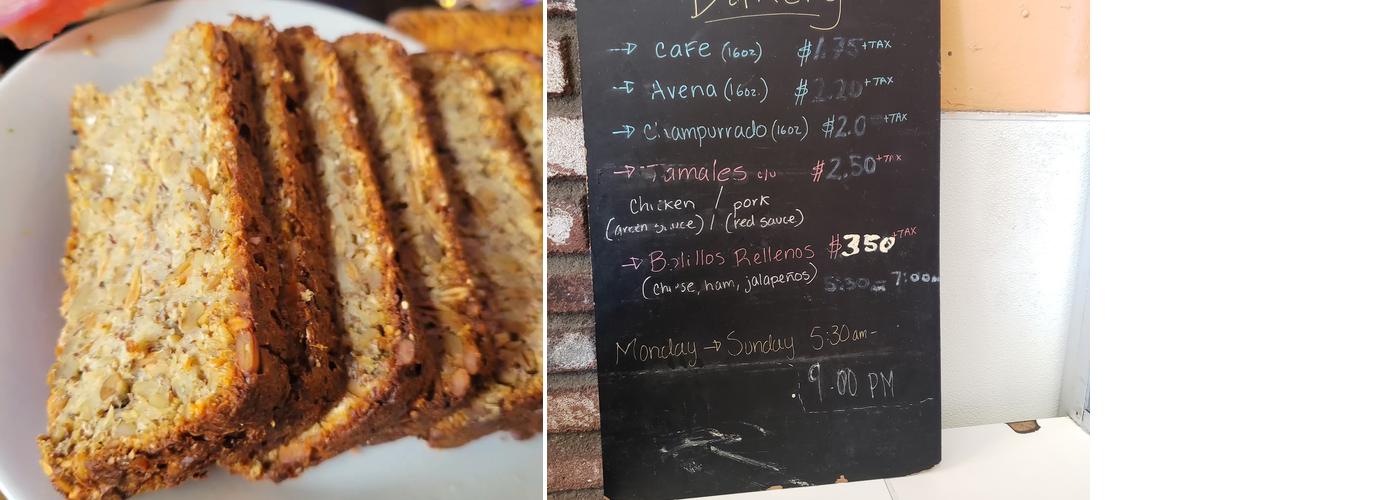 Bakery
→ CAFE (16oz) $1.75 +TAX
→ Avena (16oz.) $2.20 +TAX
→ Champurrado (16oz) $2.0 +TAX
→ Tamales c/u $2.50 +TAX
chicken / pork
(green sauce) / (red sauce)
→ Bolillos Rellenos $350 +TAX
(cheese, ham, jalapeños) 5:30 - 7:00
Monday → Sunday 5:30am-
9:00 PM